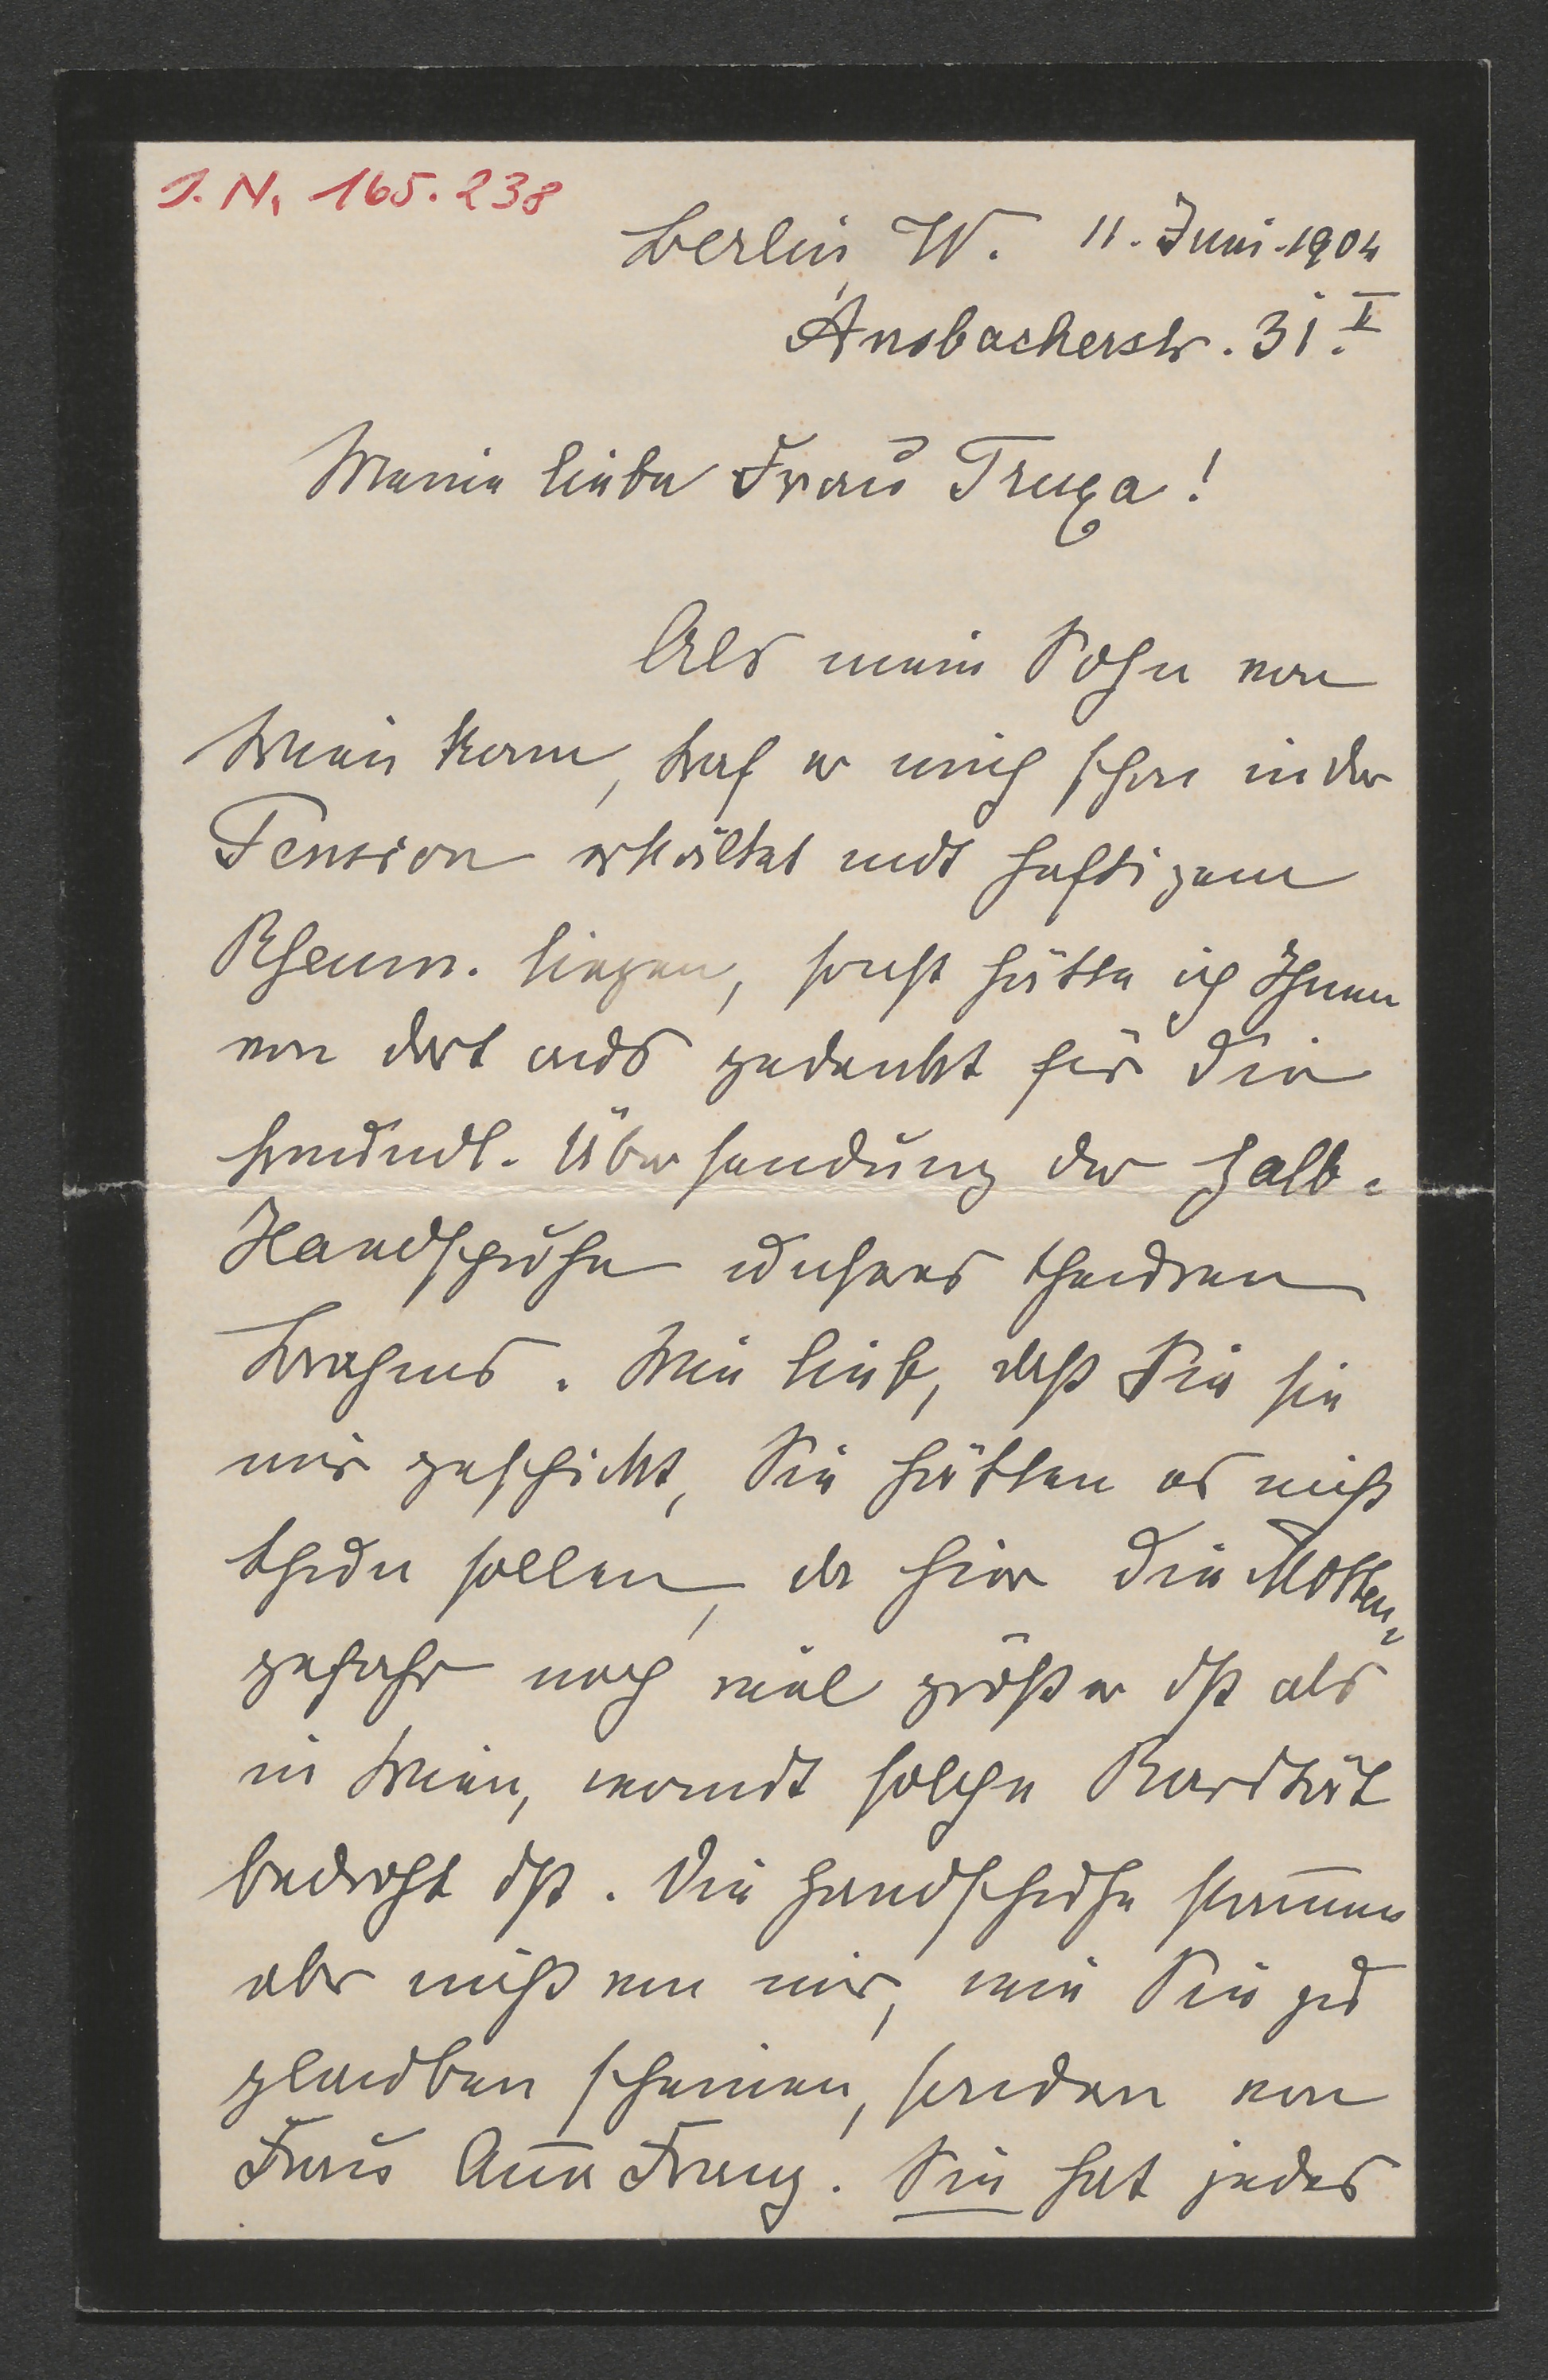 J. N. 165.238
Berlin W. 11. Juni. 1904
Ansbacherstr. 31. II
Meine liebe Frau Truxa!
Als mein Sohn von
Wien kam, traf er mich schon in der
Pension erkältet mit heftigem
Rheum. liegen, sonst hätte ich Ihnen
von dort aus gedankt für die
freundl. Übersendung der Halb-
Handschuhe unseres theuren
Brahms. Wie lieb, daß Sie sie
mir geschickt, Sie hätten es nicht
thun sollen, da hier die Motten-
gefahr noch viel größer ist als
in Wien, womit solche Rarität
bedroht ist. Die Handschuhe stam̅en
aber nicht von mir, wie Sie zu
glauben scheinen, sondern von
Frau An̅a Franz. Sie hat jedes